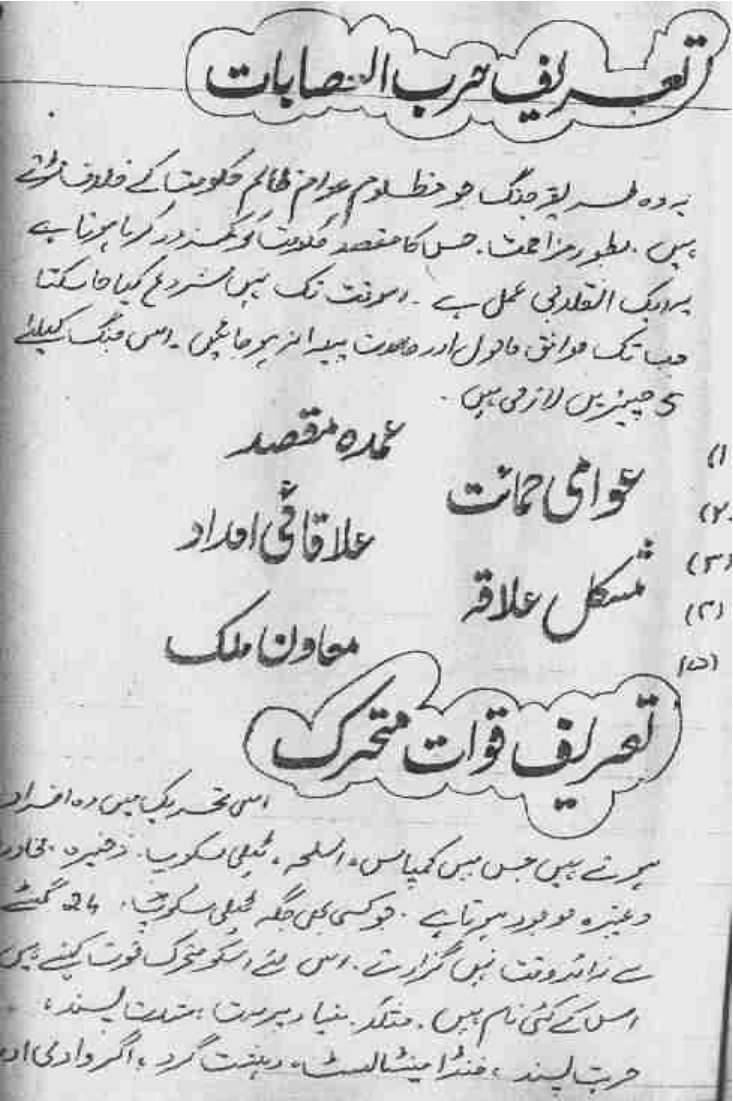 تعریف حرب العصابات
یہ وہ طریقہ جنگ جو مظلوم عوام ظالم حکومت کے خلاف لڑتے
ہیں۔ بطور مزاحمت۔ جس کا مقصد حکومت کو کمزور کرنا ہوتا ہے
یہ ایک انقلابی عمل ہے۔ اسوقت تک نہیں شروع کیا جا سکتا
جب تک موافق ماحول اور حالات پیدا نہ ہو جائیں۔ اس جنگ کیلئے
5 چیزیں لازمی ہیں۔
(۱ عمدہ مقصد
(۲ عوامی حمائت
(۳ علاقائی امداد
(۴ مشکل علاقہ
(۵ معاون ملک
تعریف قوات متحرک
اس تحریک میں وہ افراد
ہوتے ہیں جس میں کمپاس، اسلحہ، ٹیلی سکوپ۔ ذخیرہ۔
وغیرہ موجود ہوتا ہے۔ جو کسی بھی جگہ 24 گھنٹے
سے زائد وقت نہیں گزارتے۔ اس لئے اسکو متحرک قوت کہتے ہیں
اس کے کئی نام ہیں۔ بنیاد پرست، شدت پسند،
حریت پسند، فنڈا مینٹالسٹ، دہشت گرد،